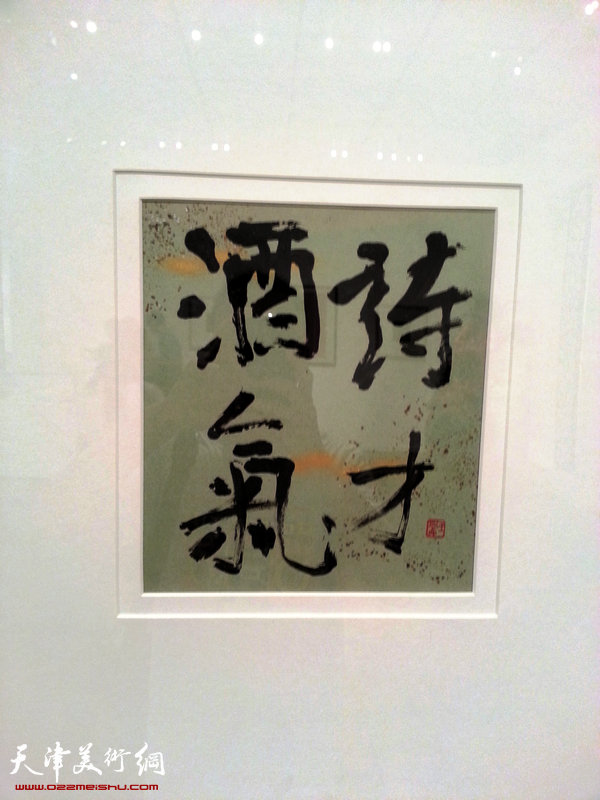 詩才
酒氣
天津美術網
www.022meishu.com